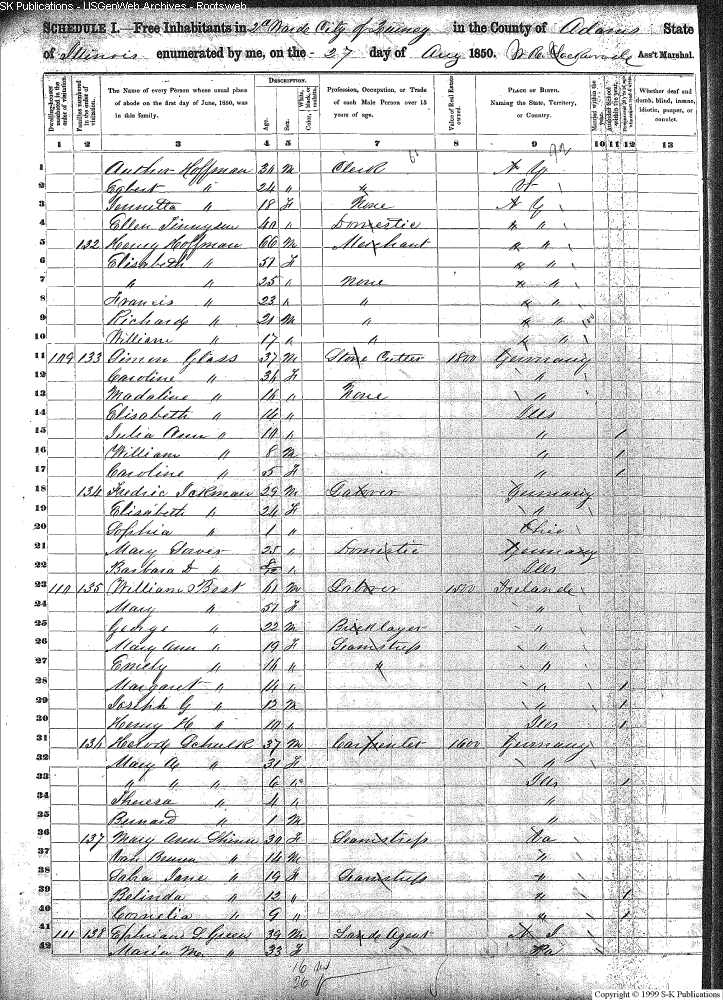 SK Publications - USGenWeb Archives - Rootsweb
SCHEDULE I.—Free Inhabitants in 2d Ward City of Quincy in the County of Adams State
of Illinois enumerated by me, on the 27 day of Aug 1850. Ass't Marshal.
DESCRIPTION.
Dwelling-houses numbered in the order of visitation. Families numbered in the order of visitation. The Name of every Person whose usual place of abode on the first day of June, 1850, was in this family. Age. Sex. White, black, or mulatto. Color, Profession, Occupation, or Trade of each Male Person over 15 years of age. Value of Real Estate owned. PLACE OF BIRTH. Naming the State, Territory, or Country. Married within the year. Attended School within the year. Whether deaf and dumb, blind, insane, idiotic, pauper, or convict.
1 2 3 4 5 6 7 8 9 10 11 12 13
1 Hoffman 30 M Clerk N Y
2 Egbert " 24 " " " "
3 Jennetta " 18 F None N Y
4 Ellen 40 " Domestic " "
5 132 Henry Hoffman 66 M Merchant " "
6 Elisabeth " 51 F " "
7 " " 25 " None " "
8 Francis " 23 " " " "
9 Richard " 21 M " " "
10 William " 17 " " " "
11 109 133 Simon Glass 37 M Stone Cutter 1800 Germany
12 Caroline " 36 F "
13 Madaline " 16 " None "
14 Elisabeth " 14 " Ills
15 Julia Ann " 10 " " 1
16 William " 8 M " 1
17 Caroline " 5 F " 1
18 134 Fredric 29 M Laborer Germany
19 Elisabeth " 24 F "
20 Sophia " 1 " Ohio
21 Mary 25 " Domestic Germany
22 Barbara " " Ills
23 110 135 William Best 61 M Laborer 1500 Ireland
24 Mary " 51 F "
25 George " 22 M Bricklayer "
26 Mary Ann " 19 F Seamstress "
27 Emely " 16 " " "
28 Margaret " 14 " " 1
29 Joseph G " 12 M " 1
30 Henry H " 10 " Ills 1
31 136 Schulk 37 M Carpenter 1600 Germany
32 Mary A " 31 F "
33 " " " 6 " Ills 1
34 Theresa " 4 " "
35 Bernard " 1 M "
36 137 Mary Ann 30 F Seamstress Va
37 Van Beuren " 14 M "
38 Jane " 19 F Seamstress "
39 Belinda " 12 " " 1
40 Cornelia " 9 " " 1
41 111 138 Ephriam S Green 39 M Land Agent N J
42 Maria M " 33 F Pa
16 M
26 F
Copyright © 1999 S-K Publications